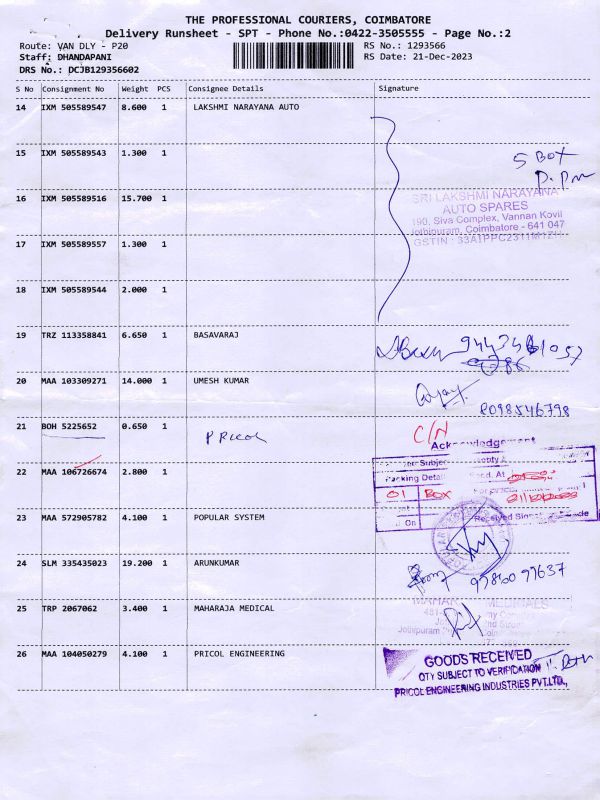 THE PROFESSIONAL COURIERS, COIMBATORE
Delivery Runsheet - SPT - Phone No.:0422-3505555 - Page No.:2
Route: VAN DLY - P20 RS No.: 1293566
Staff: DHANDAPANI RS Date: 21-Dec-2023
DRS No.: DCJB129356602
S No Consignment No Weight PCS Consignee Details Signature
14 IXM 505589547 8.600 1 LAKSHMI NARAYANA AUTO
15 IXM 505589543 1.300 1
5 BOX
16 IXM 505589516 15.700 1
SRI LAKSHMI NARAYANA
AUTO SPARES
190, Siva Complex, Vannan Kovil
Jothipuram, Coimbatore - 641 047
GSTIN : 33AIPPC2311M1ZH
17 IXM 505589557 1.300 1
18 IXM 505589544 2.000 1
19 TRZ 113358841 6.650 1 BASAVARAJ
20 MAA 103309271 14.000 1 UMESH KUMAR
21 BOH 5225652 0.650 1 PRICOL
C/N
Acknowledgement
22 MAA 106726674 2.800 1
Packing
01 BOX
On Received
23 MAA 572905782 4.100 1 POPULAR SYSTEM
24 SLM 335435023 19.200 1 ARUNKUMAR
25 TRP 2067062 3.400 1 MAHARAJA MEDICAL
Jothipuram
26 MAA 104050279 4.100 1 PRICOL ENGINEERING
GOODS RECEIVED
QTY SUBJECT TO VERIFICATION
PRICOL ENGINEERING INDUSTRIES PVT.LTD.,